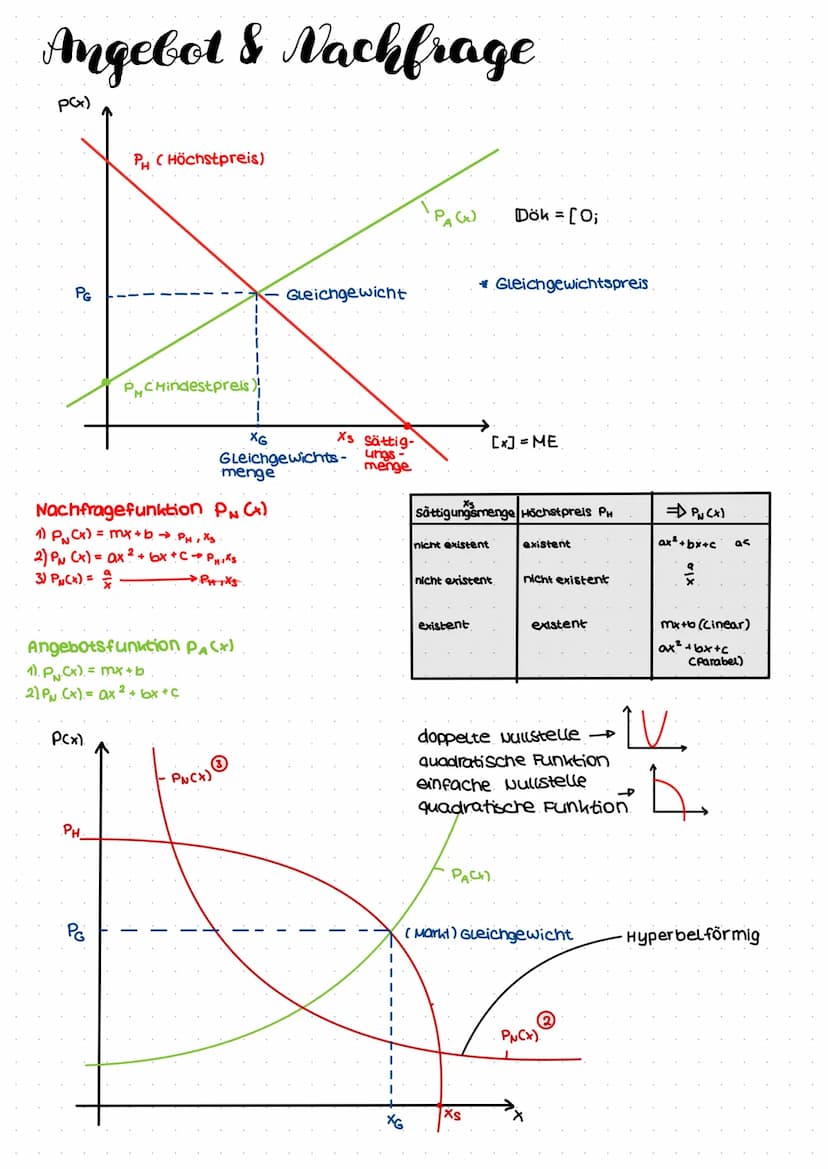 Angebot & Nachfrage
P(x)
PH (Höchstpreis)
PA(x)
Dök = [0;
PG
Gleichgewicht
* Gleichgewichtspreis
PM (Mindestpreis)
xG
Gleichgewichts-
menge
xS Sättig-
ungs-
menge
[x] = ME
Nachfragefunktion PN(x)
1) PN(x) = mx+b → PH, xS
2) PN(x) = ax² + bx + c → PH, xS
3) PN(x) = a/x → PH, xS
Angebotsfunktion PA(x)
1) PN(x) = mx+b
2) PN(x) = ax² + bx + c
xS
Sättigungsmenge Höchstpreis PH ⇒ PN(x)
nicht existent existent ax²+bx+c a<
nicht existent nicht existent a/x
existent existent mx+b (Linear)
ax²+bx+c
(Parabel)
doppelte Nullstelle →
quadratische Funktion
einfache Nullstelle
quadratische Funktion →
P(x)
PN(x) ③
PH
PA(x)
PG
(Markt) Gleichgewicht
Hyperbelförmig
PN(x) ②
xG
xS
x